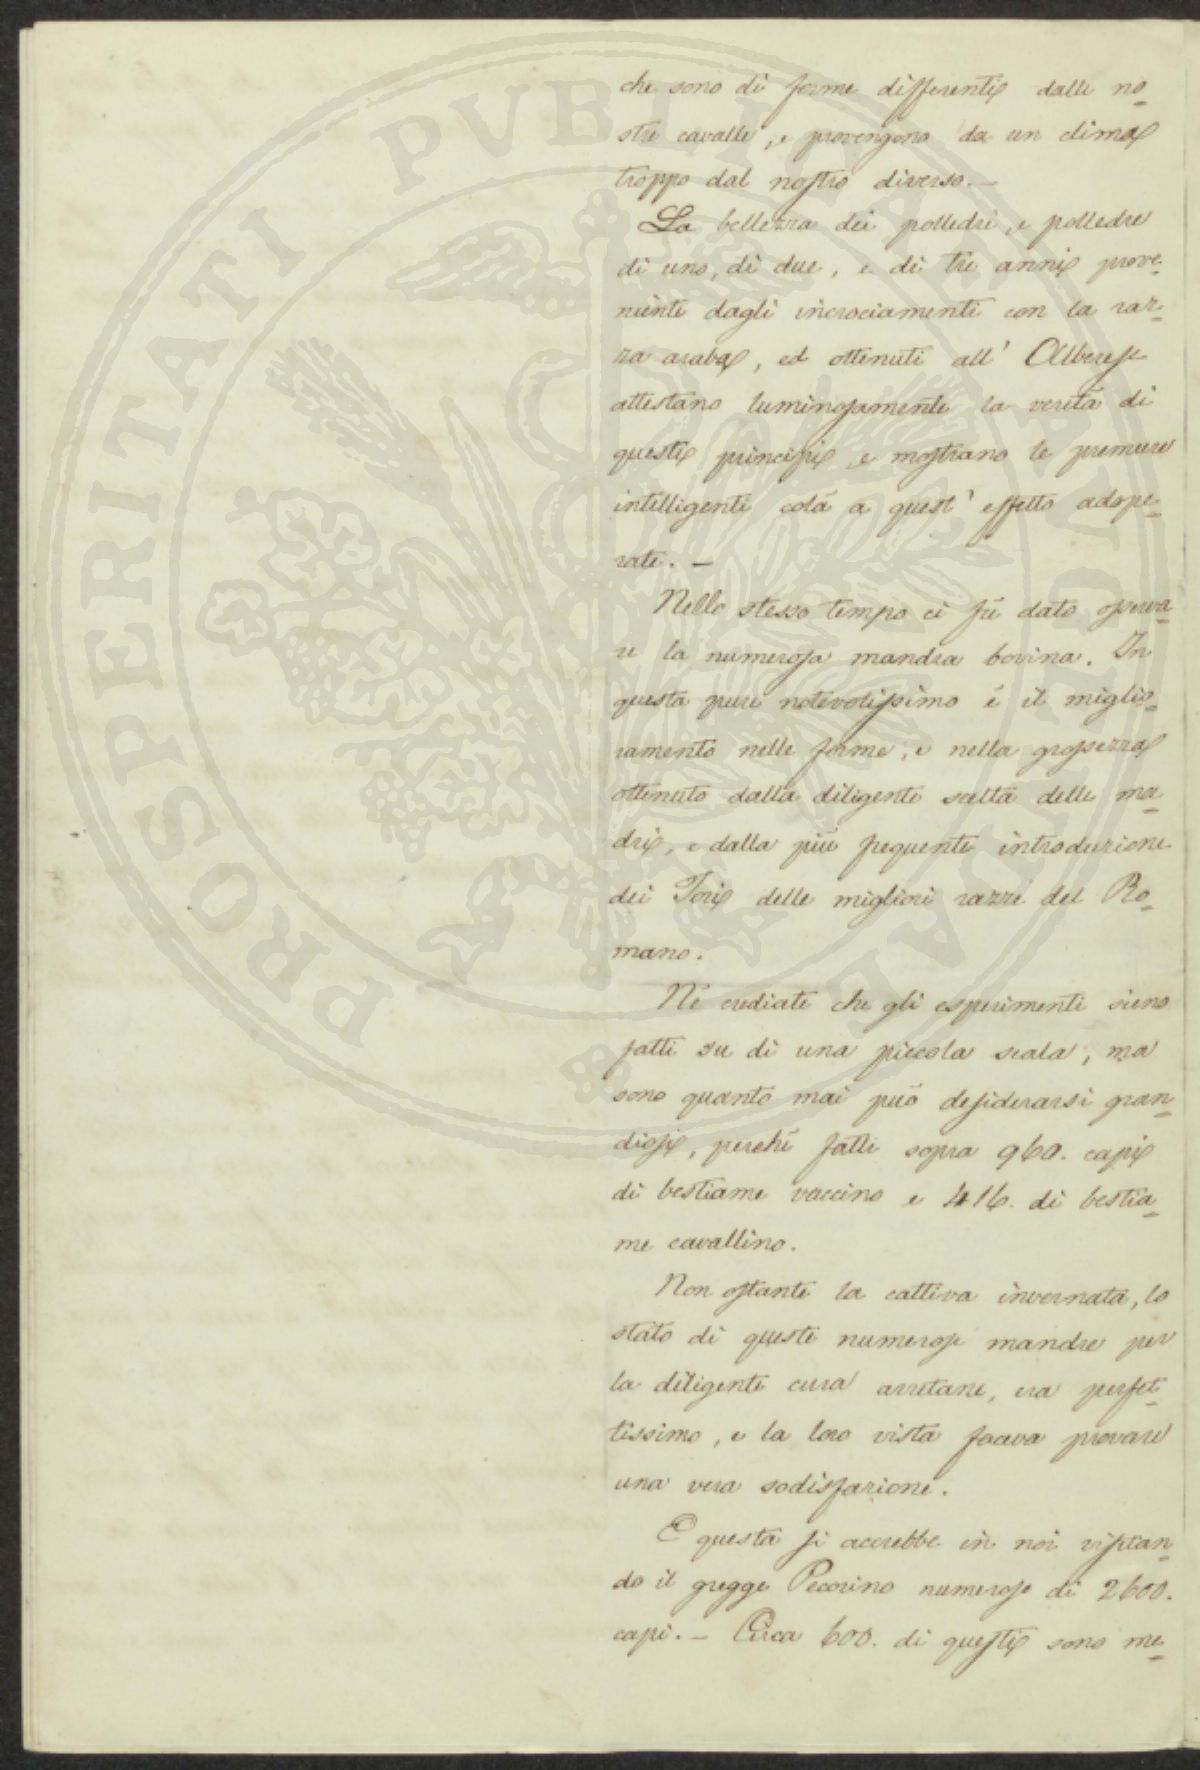 che sono di forme differenti dalle no=
stre cavalle, e provengono da un clima
troppo dal nostro diverso. —
La bellezza dei polledri, e polledre
di uno, di due, e di tre anni prove=
niente dagli incrociamenti con la raz=
za araba, ed ottenuti all' Alberese
attestano luminosamente la verità di
questi principii, e mostrano le premure
intelligenti colà a quest' effetto adope=
rate. —
Nello stesso tempo ci fù dato osserva=
re la numerosa mandra bovina. In
questa pure notevolissimo è il miglio=
ramento nelle forme, e nella grossezza
ottenuto dalla diligente scelta delle ma=
dri, e dalla più frequente introduzione
dei Tori delle migliori razze del Ro=
mano.
Nè crediate che gli esperimenti sieno
fatti su di una piccola scala, ma
sono quanto mai può desiderarsi gran=
diosi, perchè fatti sopra 960. capi
di bestiame vaccino e 416. di bestia=
me cavallino.
Non ostante la cattiva invernata, lo
stato di queste numerose mandre per
la diligente cura arretane, era perfet=
tissimo, e la loro vista faceva provare
una vera sodisfazione.
E questa si accrebbe in noi visitan=
do il gregge Pecorino numeroso di 2600.
capi. — Circa 600. di questi sono me=
PROSPERITATI PVBLICAE AVGENDAE